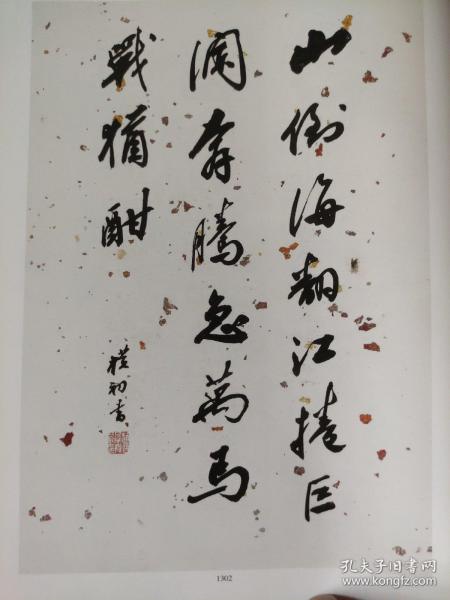 山倒海翻江捲巨
澜奔腾急萬马
戰犹酣
樸初书
1302
孔夫子旧书网
www.kongfz.com